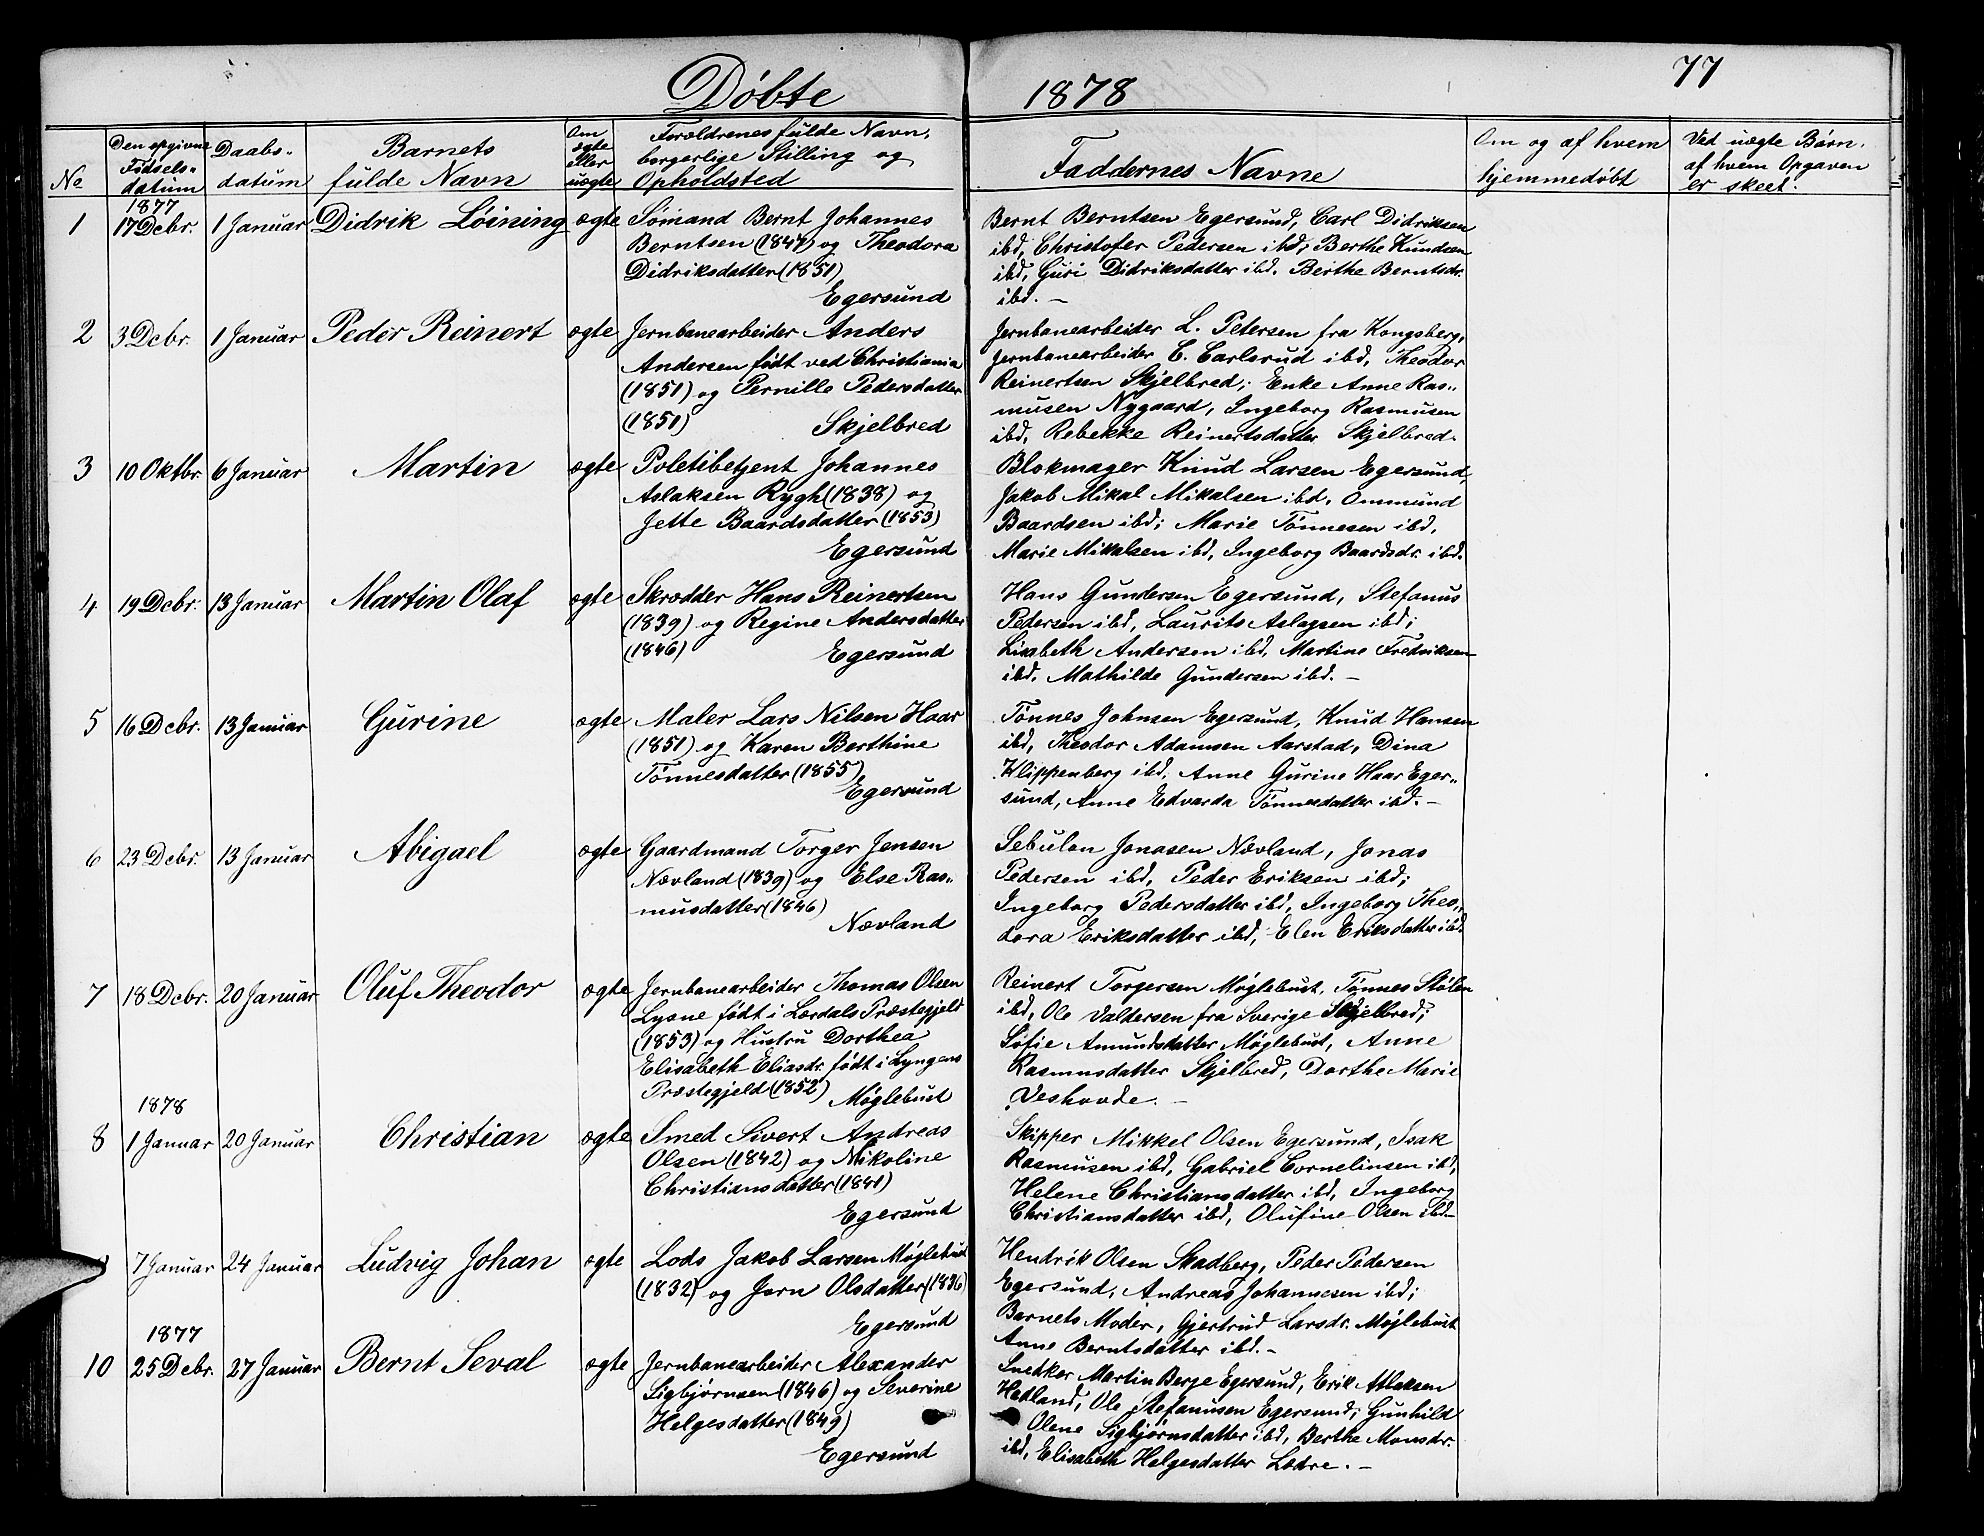 77
Døbte 1878
No
Den opgivne Fødsels-datum
Daabs-datum
Barnets fulde Navn
Om ægte eller uægte
Forældrenes fulde Navn, borgerlige Stilling og Opholdsted
Faddernes Navne
Om og af hvem hjemmedøbt
Ved uægte Børn, af hvem Opgaven er skeet.
1877
1 17 Dcbr. 1 Januar Didrik Löining ægte
Sømand Bernt Johannes
Berntsen (1847) og Theodora
Didriksdatter (1851)
Egersund
Bernt Berntsen Egersund, Carl Didriksen
ibd, Christofer Pedersen ibd; Berthe Knudsen
ibd, Guri Didriksdatter ibd. Berthe Berntsdr.
ibd. –
2 3 Dcbr. 1 Januar Peder Reinert ægte
Jernbanearbeider Anders
Andersen født ved Christiania
(1851) og Pernille Pedersdatter
(1851) Skjelbred
Jernbanearbeider L. Petersen fra Kongsberg,
Jernbanearbeider C. Carlsrud ibd, Theodor
Reinertsen Skjelbred; Enke Anne Ras-
musen Nygaard, Ingeborg Rasmusen
ibd, Rebekke Reinertsdatter Skjelbred.
3 10 Oktbr. 6 Januar Martin ægte
Poletibetjent Johannes
Aslaksen Rygh (1838) og
Jette Baardsdatter (1853)
Egersund
Blokmager Knud Larsen Egersund,
Jakob Mikal Mikalsen ibd, Ommund
Baardsen ibd; Marie Tönnesen ibd,
Marie Mikalsen ibd, Ingeborg Baardsdr. ibd.
4 19 Dcbr. 13 Januar Martin Olaf ægte
Skrædder Hans Reinertsen
(1839) og Regine Andersdatter
(1846) Egersund
Hans Gundersen Egersund, Stefanus
Petersen ibd, Laurits Aslagsen ibd;
Lisabeth Andersen ibd, Martine Fredriksen
ibd, Mathilde Gundersen ibd. –
5 16 Dcbr. 13 Januar Gurine ægte
Maler Lars Nilsen Haar
(1851) og Karen Berthine
Tönnesdatter (1855)
Egersund
Tönnes Johnsen Egersund, Knud Hansen
ibd, Theodor Adamsen Aarstad, Dina
Klippenberg ibd, Anne Gurine Haar Eger-
sund, Anne Edvarda Tönnesdatter ibd. –
6 23 Dcbr. 13 Januar Abigael ægte
Gaardmand Torger Jensen
Nævland (1839) og Else Ras-
musdatter (1846)
Nævland
Sebulon Jonasen Nævland, Jonas
Pedersen ibd, Peder Eriksen ibd;
Ingeborg Pedersdatter ibd, Ingeborg Theo-
dora Eriksdatter ibd, Elen Eriksdatter ibd.
7 18 Dcbr. 20 Januar Oluf Theodor ægte
Jernbanearbeider Thomas Olsen
Lysne født i Lærdals Præstegjeld
(1853) og Hustru Dorthea
Elisabeth Eliasdr. født i Lyngens
Præstegjeld (1852) Møglebust
Reinert Torgersen Møglebust, Tönnes Stølen
ibd, Ole Valdersen fra Sverige Skjelbred;
Sofie Amundsdatter Møglebust, Anne
Rasmusdatter Skjelbred, Dorthe Marie
Veshovde. –
1878
8 1 Januar 20 Januar Christian ægte
Smed Sivert Andreas
Olsen (1842) og Nikoline
Christiansdatter (1841)
Egersund
Skipper Mikkel Olsen Egersund, Isak
Rasmusen ibd, Gabriel Corneliusen ibd,
Helene Christiansdatter ibd, Ingeborg
Christiansdatter ibd, Olufine Olsen ibd. –
7 Januar 24 Januar Ludvig Johan ægte
Lods Jakob Larsen Møglebust
(1832) og Jorn Olsdatter (1836)
Egersund
Hendrik Olsen Skadberg, Peder Pedersen
Egersund, Andreas Johannesen ibd;
Barnets Moder, Gjertrud Larsdr. Møglebust
Anne Berntsdatter ibd. –
1877
10 25 Dcbr. 27 Januar Bernt Seval ægte
Jernbanearbeider Alexander
Sigbjørnsen (1846) og Severine
Helgesdatter (1849)
Egersund
Snekker Martin Berge Egersund, Erik Atlaksen
Hetland, Ole Stefanusen Egersund; Gunhild
Olene Sigbjørnsdatter ibd, Berthe Monsdr.
ibd, Elisabeth Helgesdatter Lædre. –